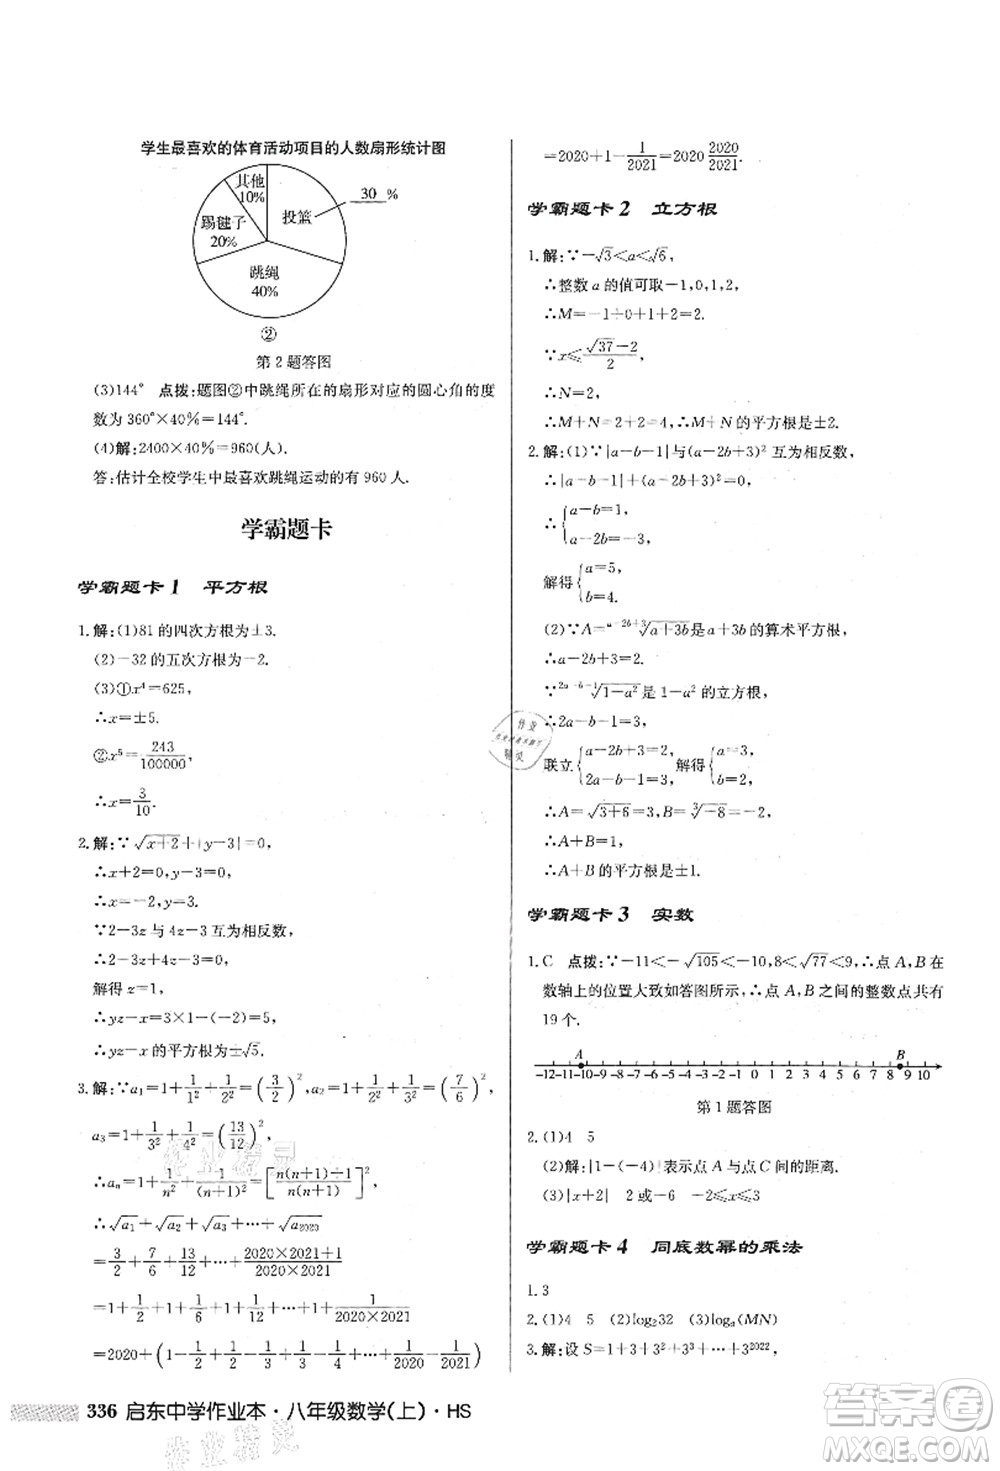 学生最喜欢的体育活动项目的人数扇形统计图
其他
10%
30 %
投篮
踢毽子
20%
跳绳
40%
②
第2题答图
(3)144° 点拨:题图②中跳绳所在的扇形对应的圆心角的度
数为360°×40%=144°.
(4)解:2400×40%=960(人).
答:估计全校学生中最喜欢跳绳运动的有960人.
学霸题卡
学霸题卡1 平方根
1.解:(1)81的四次方根为±3.
(2)-32的五次方根为-2.
(3)①x⁴=625,
∴x=±5.
②x⁵=243/100000,
∴x=3/10.
2.解:∵√(x+2)+|y-3|=0,
∴x+2=0,y-3=0,
∴x=-2,y=3.
∵2-3z与4z-3互为相反数,
∴2-3z+4z-3=0,
解得z=1,
∴yz-x=3×1-(-2)=5,
∴yz-x的平方根为±√5.
3.解:∵a₁=1+1/1²+1/2²=(3/2)²,a₂=1+1/2²+1/3²=(7/6)²,
a₃=1+1/3²+1/4²=(13/12)²,
∴aₙ=1+1/n²+1/(n+1)²=[(n(n+1)+1)/(n(n+1))]²,
∴√a₁+√a₂+√a₃+⋯+√a₂₀₂₀
=3/2+7/6+13/12+⋯+(2020×2021+1)/(2020×2021)
=1+1/2+1+1/6+1+1/12+⋯+1+1/(2020×2021)
=2020+(1-1/2+1/2-1/3+⋯+1/2020-1/2021)
=2020+1-1/2021=2020 2020/2021.
学霸题卡2 立方根
1.解:∵-√3<a<√6,
∴整数a的值可取-1,0,1,2,
∴M=-1+0+1+2=2.
∵x≤(√37-2)/2,
∴N=2,
∴M+N=2+2=4,∴M+N的平方根是±2.
2.解:(1)∵|a-b-1|与(a-2b+3)²互为相反数,
∴|a-b-1|+(a-2b+3)²=0,
∴{a-b=1,
a-2b=-3,
解得{a=5,
b=4.
(2)∵A=ᵃ⁻²ᵇ⁺³√(a+3b)是a+3b的算术平方根,
∴a-2b+3=2,∴a-2b=-1.
∵²ᵃ⁻ᵇ⁻¹√(1-a²)是1-a²的立方根,
∴2a-b-1=3,∴2a-b=4,
联立{a-2b=-1,
2a-b=4,解得{a=3,
b=2,
∴A=√(3+6)=3,B=³√-8=-2,
∴A+B=1,
∴A+B的平方根是±1.
学霸题卡3 实数
1.C 点拨:∵-11<-√105<-10,8<√77<9,∴点A,B在
数轴上的位置大致如答图所示,∴点A,B之间的整数点共有
19个.
A B
-12-11-10-9 -8 -7 -6 -5 -4 -3 -2 -1 0 1 2 3 4 5 6 7 8 9 10
第1题答图
2.(1)4 5
(2)解:|1-(-4)|表示点A与点C间的距离.
(3)|x+2| 2或-6 -2≤x≤2
学霸题卡4 同底数幂的乘法
1.3
2.(1)4 5 (2)log₂32 (3)logₐ(MN)
3.解:设S=1+3+3²+3³+3⁴+⋯+3²⁰²²,
336 启东中学作业本·八年级数学(上)·HS
答案圈
MXQE.COM